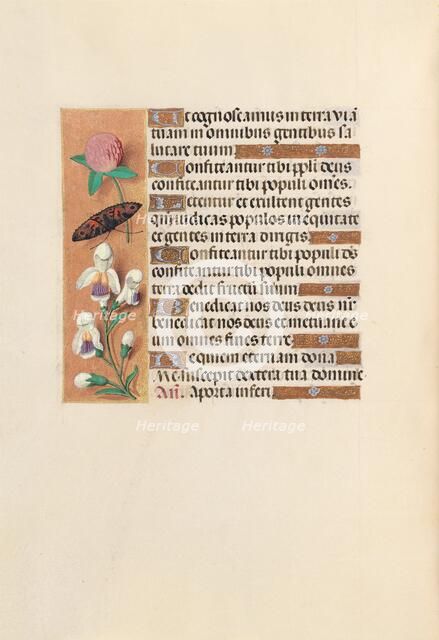 Ut cognoscamus in terra viā
tuam in omnibus gentibus sa
lutare tuum
Confiteantur tibi ppli deus
confiteantur tibi populi omēs.
Letentur et exultent gentes
qm iudicas populos in equitate
et gentes in terra dirigis
Confiteantur tibi populi ds
confiteantur tibi populi omnes
terra dedit fructū suum
Benedicat nos deus deus nr̄
benedicat nos deus et metuant e
um omnes fines terre
Requiem eternam dona
Me suscepit dextera tua domine
Añ. A porta inferi
Heritage Heritage
Heritage Heritage
Heritage Heritage